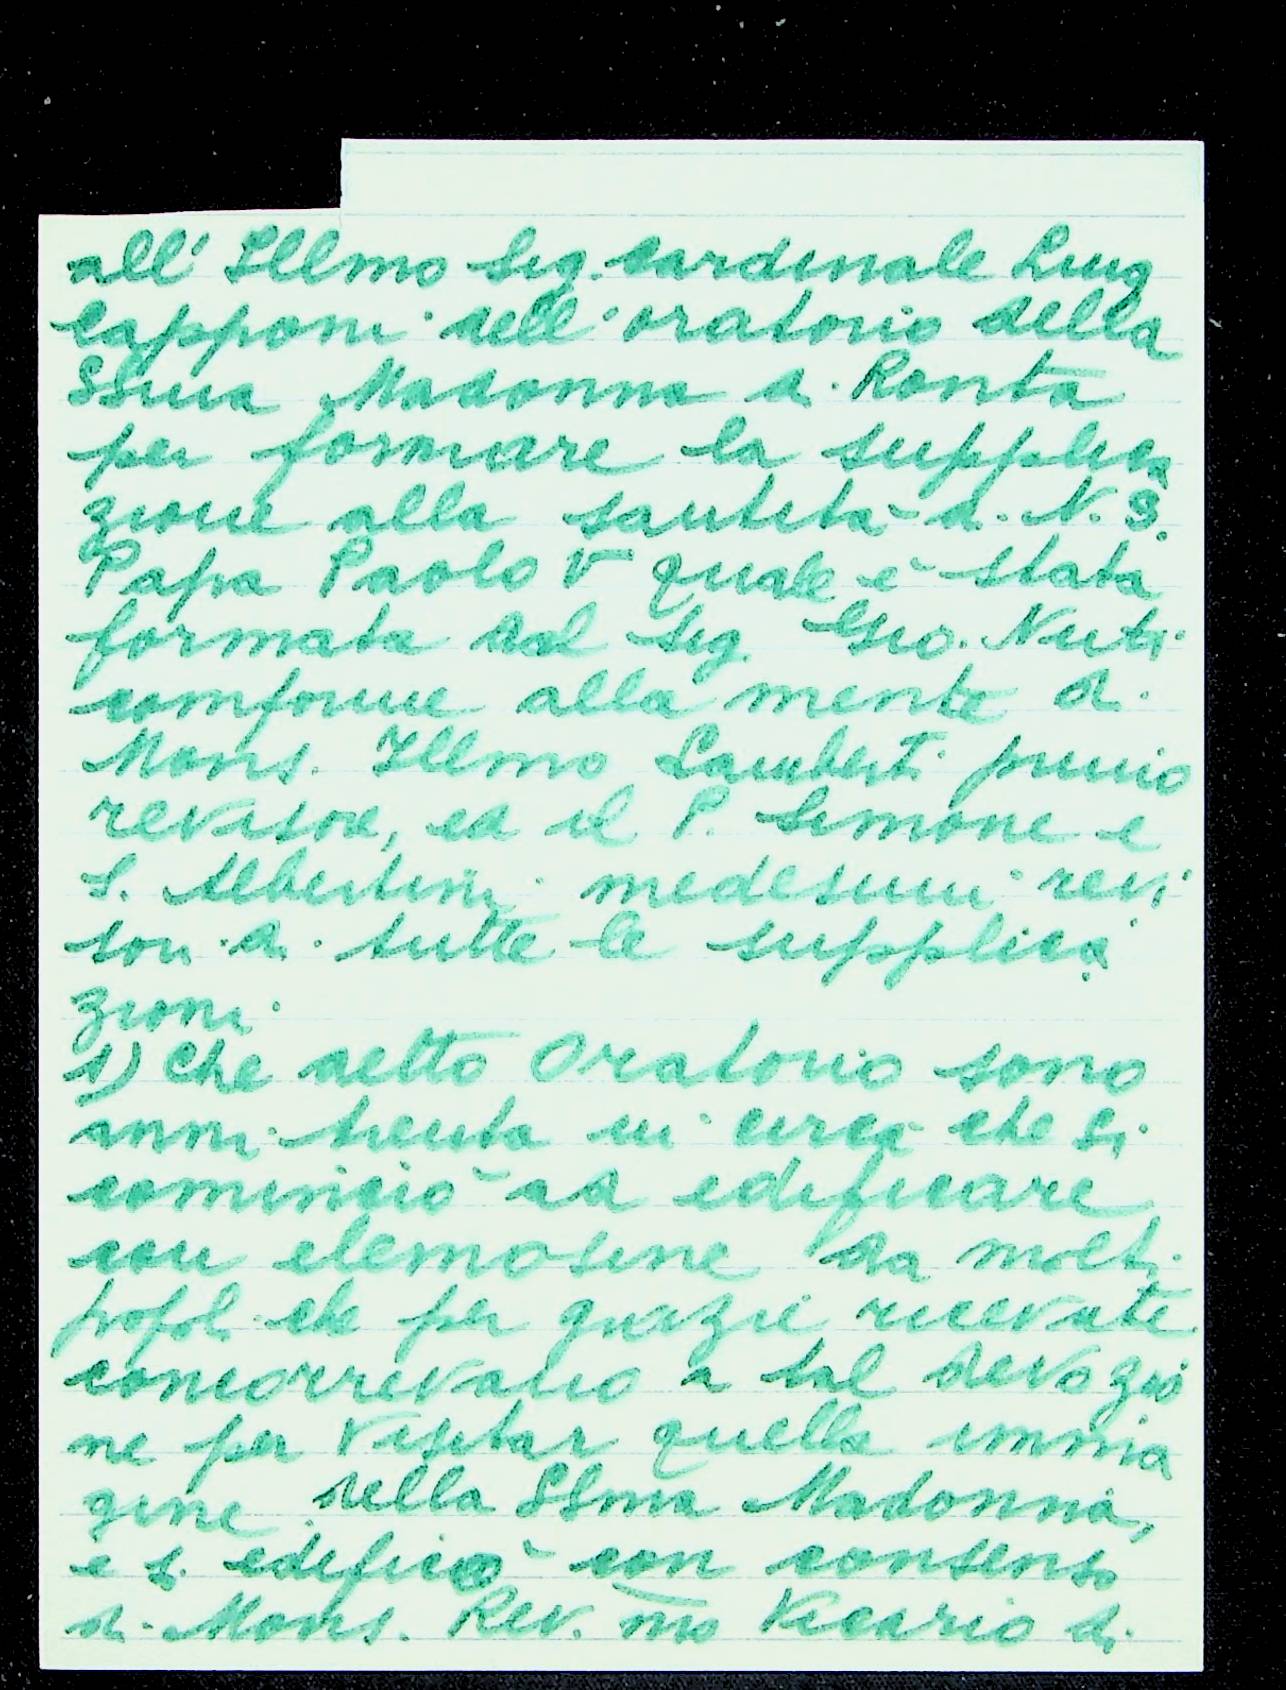 all' Illmo Sig. Cardinale Luig
Capponi dell'oratorio della
SSma Madonna di Ronta
per formare la supplica
zione alla santità di N. S.
Papa Paolo V quale è stata
formata dal Sig. Gio. Nuti
comforme alla mente di
Mons. Illmo Lamberti primo
revisore, ed il P. Simone e
S. Albertini medesimi revi
sori di tutte le supplica
zioni
1) Che detto Oratorio sono
anni trenta in circa che si
cominciò ad edificare
con elemosine da molti
popoli che per grazie ricevute
concorrevano a tal devozio
ne per visitar quella imma
gine della SSma Madonna,
e si edificò con consenso
di Mons. Rev.mo Vicario di